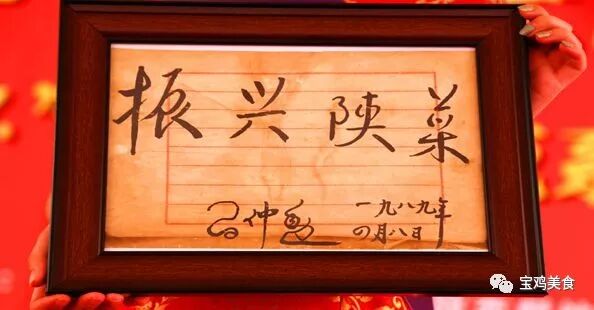 振兴陕菜
习仲勋
一九八九年
四月八日
宝鸡美食